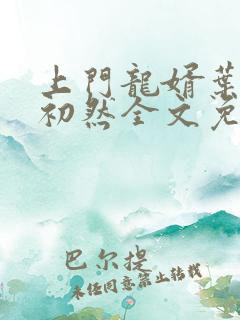 上門龍婿葉
初然全文免
巴尔提
未经同意禁止转载